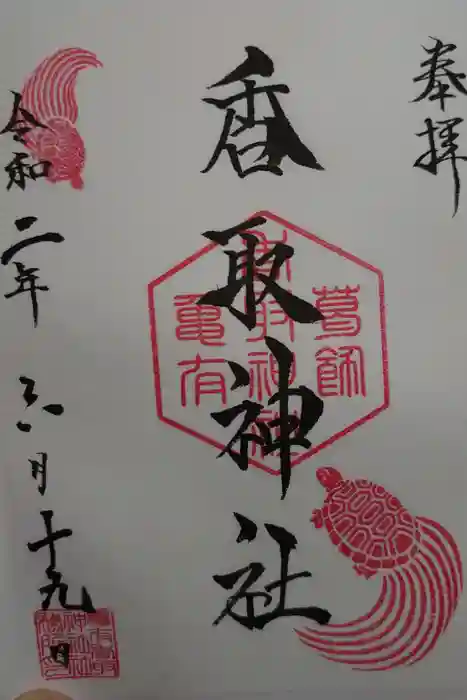 奉拝
香取神社
葛飾
香取神社
亀有
令和二年 六月十九日